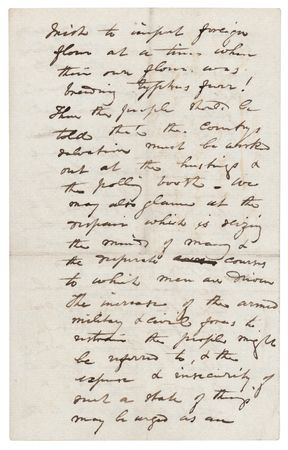 Irish to import foreign
flour at a time when
their own flour was
feeding Typhus fever!
Then the people should be
told that the country's
salvation must be work
out at the hustings &
the polling booth. We
may also glance at the
despair which is seizing
the minds of many &
the desperate courses
to which men are driven
The increase of the armed
military & civil forces to
restrain the people might
be referred to, & the
expense & insecurity of
such a state of things
may be urged as an